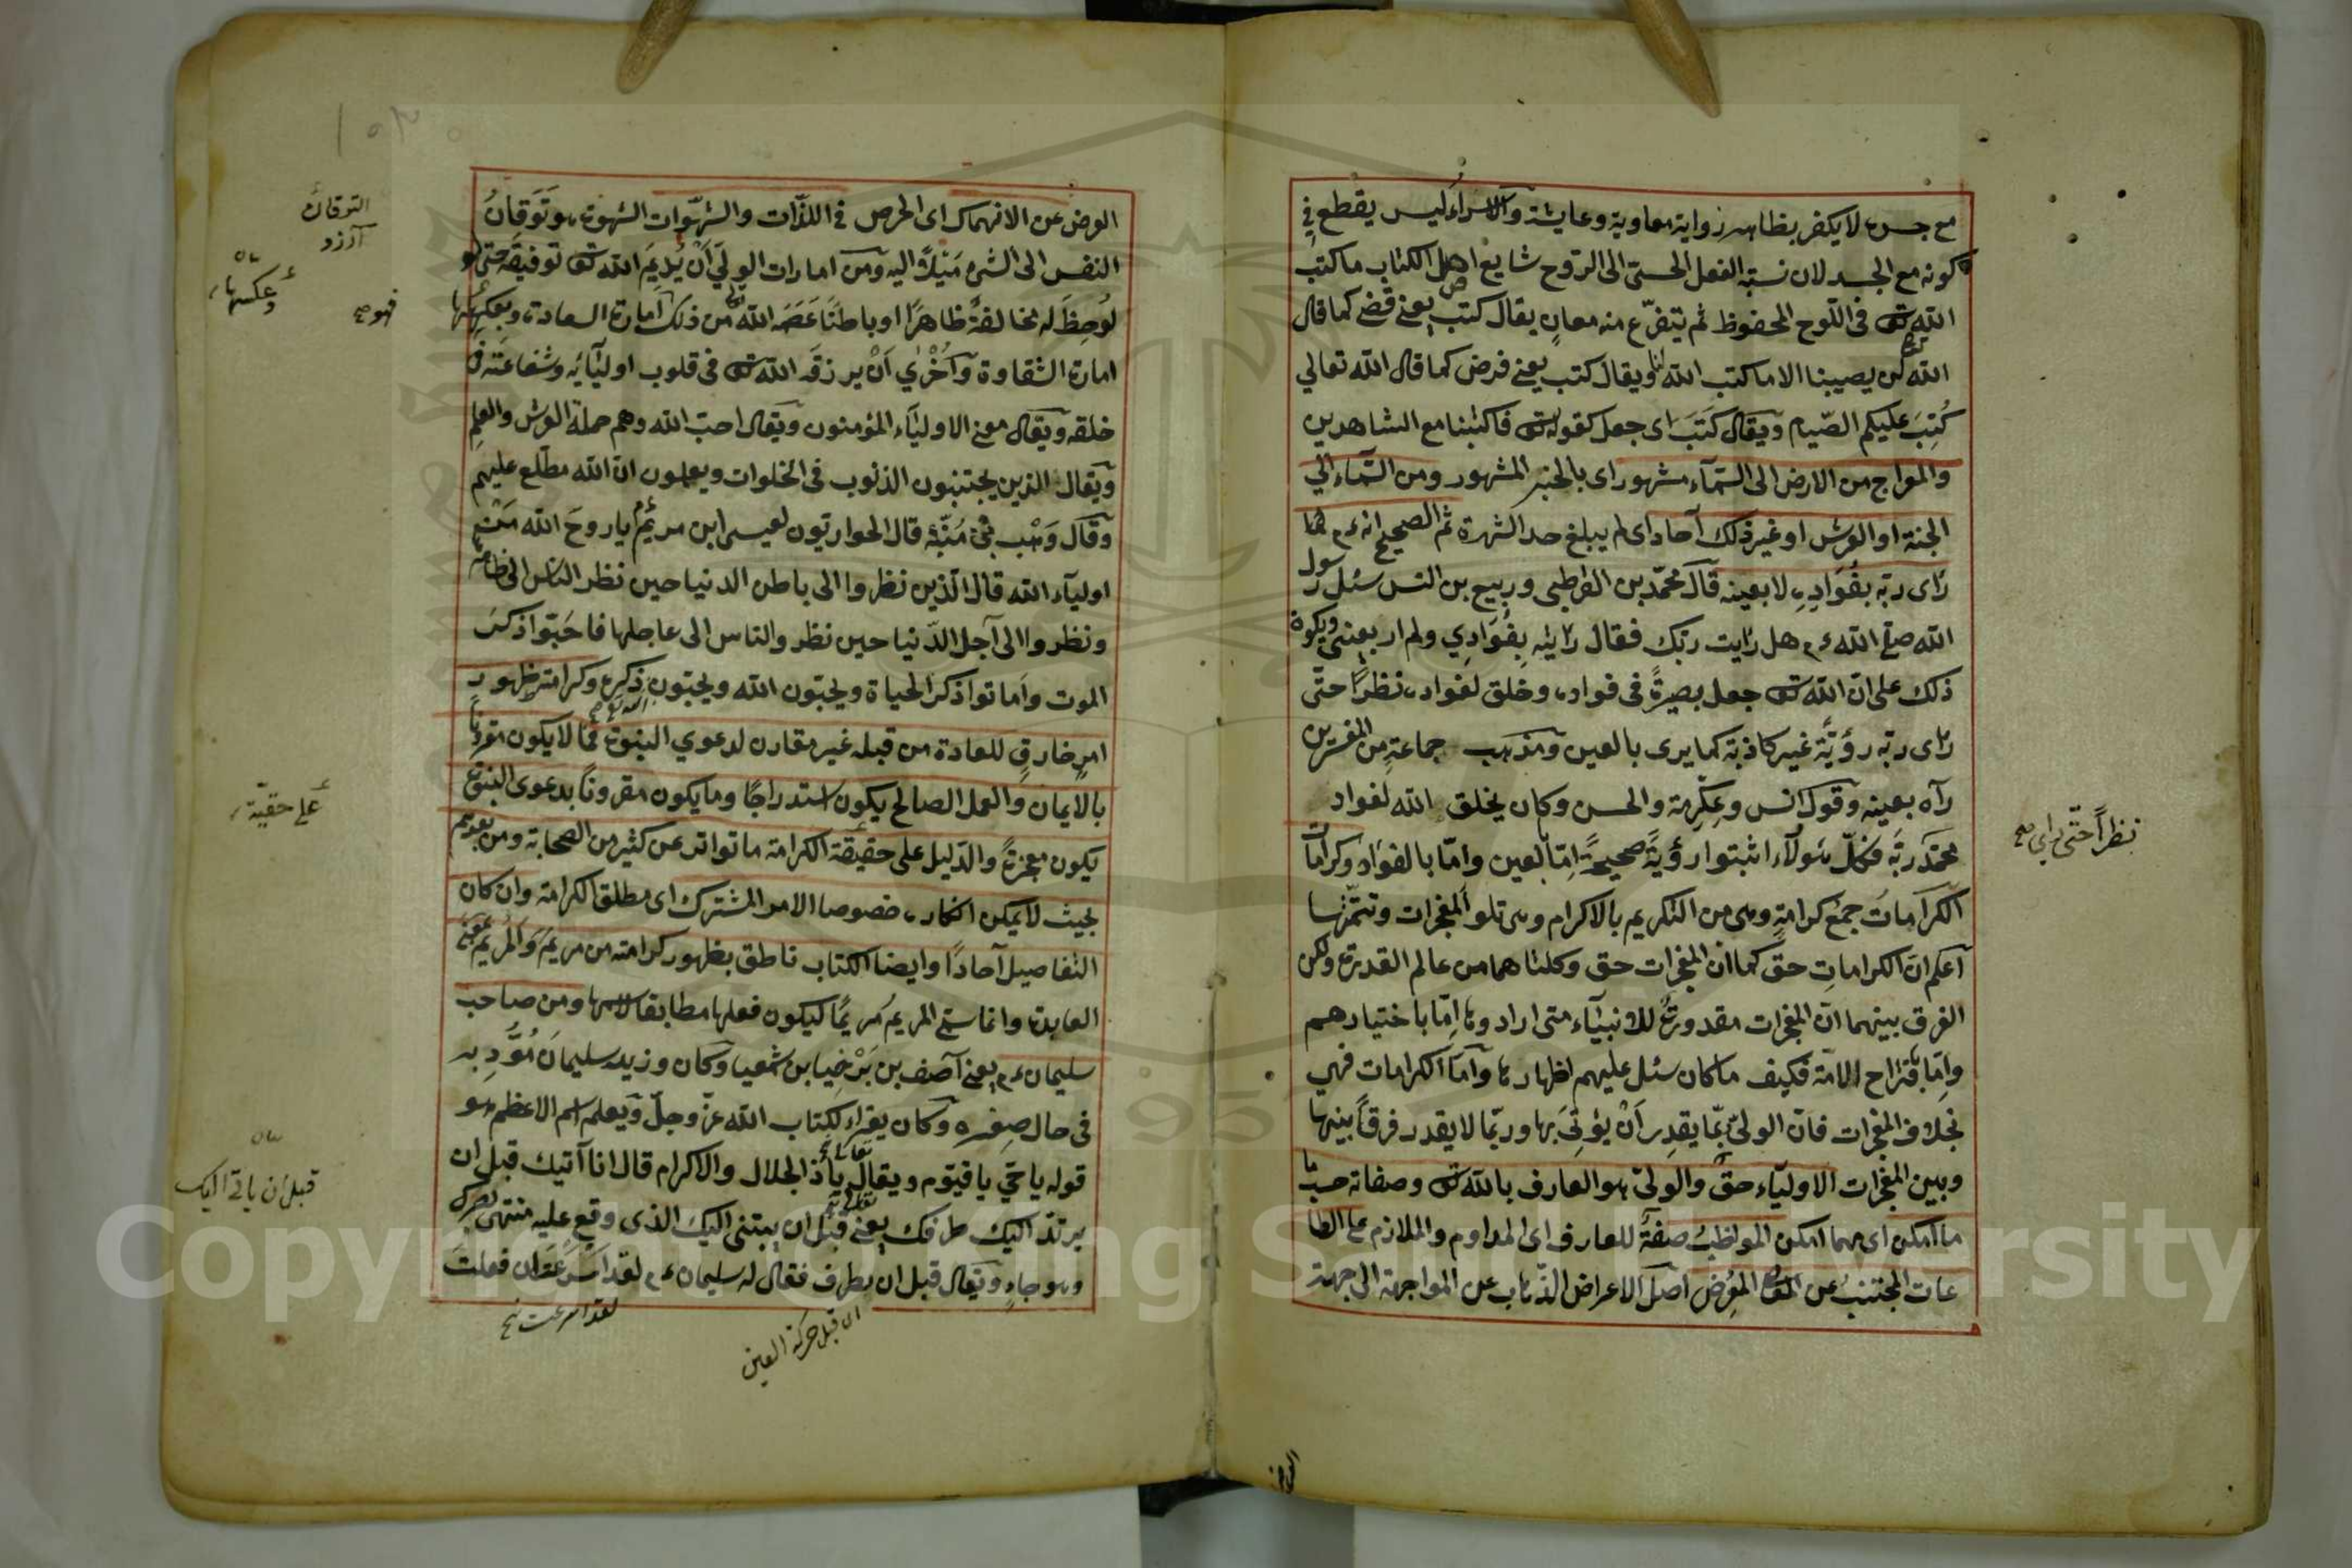 مع جسده لا يكفر بظاهر رواية معاوية وعايشة والاسراء ليس يقطع في
كونه مع الجسد لان نسبة الفعل الحسى الى الروح شايع اصل الكتاب ما كتب
الله تع فى اللوح المحفوظ ثم يتفرّع منه معانٍ يقال كتب يعنى قضى كما قال
الله تع لن يصيبنا الا ما كتب الله لنا ويقال كتب يعنى فرض كما قال الله تعالي
كُتِبَ عليكم الصّيام ويقال كَتَبَ اى جعل كقوله تع فاكتبنا مع الشاهدين
والمعراج من الارض الى السّمآء مشهور اى بالخبر المشهور ومن السّماء الي
الجنة او العرش او غير ذلك آحاد اى لم يبلغ حد الشهرة ثم الصحيح انه عم انما
راى ربّه بفُوَادِهِ لا بعينه قال محمّد بن القرطبى وربيع بن انس سئل رسول
الله صلع الله عم هل رايت ربّك فقال رايته بِفُوَادِي ولم ار بعينى ويكون
ذلك على انّ الله تع جعل بصيرةً فى فواده وخلق لفواده نظرًا حتّى
راى ربّه رؤيّة غير كاذبة كما يرى بالعين ومذهب جماعةٍ من المفسّرين
رآه بعينه وقول انس وعِكرِمة والحسن وكان يخلق الله لفواد
محمّد ربّه فكلّ هؤلآء اثبتوا رؤيةً صحيحةً امّا بالعين وامّا بالفواد وكرامات
الكرَامَاتُ جمع كرامةٍ وهى من التكريم بالاكرام وهى تلو المعجزات وتتمّتها
آعلم انّ الكرامات حقّ كما ان المعجزات حق وكلتاهما من عالم القدرة ولكن
الفرق بينهما انّ المعجزات مقدورةٌ للانبيآء متى ارادوها امّا باختيارهم
وامّا باقتراح الامّة فكيف ما كان سئل عليهم اظهارها وآمّا الكرامات فهي
بخلاف المعجزات فانّ الولىّ ربّما يقدِر اَنْ يؤتى بها وربّما لا يقدر فرقاً بينها
وبين المعجزات الاوليّاء حقٌّ والولىّ هو العارف بالله تع وصفاته حسب
ما امكن اى مهما امكن المواظبُ صفةٌ للعارف اى المداوم والملازم على الطا
عات المجتنبُ عن المعرِضُ اصل الاعراض الذّهاب عن المواجهة الى جهة
نظراً حتّى راى صح
العرض عن الانهماك اى الحرص فى اللذّات والشهّوات الشهوة هو تَوَقَانُ
النفس الى الشىء مَيْلاً اليه ومن امارات الولىّ اَنْ يُدِيمَ الله تع توفيقه حتى لو
امارة الشقاوة وآخْرٰي اَنْ يرزقَه الله تع فى قلوب اوليآئه وشفاعته فى
خلقه ويقال معنى الاوليآء المؤمنون ويقال احبّ الله وهم حملة العرش والعلم
ويقال الذين يجتنبون الذنوب فى الخلوات ويعلمون انّ الله مطّلع عليهم
وقال وَهْب بن مُنَبِّه قال الحواريّون لعيسى ابن مريمُ ياروحَ الله مَنْ
اوليآء الله قال الّذين نظروا الى باطن الدنيا حين نظر الناس الى ظاهرها
ونظروا الى آجل الدّنيا حين نظر والناس الى عاجلها فاحَبّوا ذكر
الموت واَماتوا ذكرَ الحياة ويحبّون الله ويحبّون ذكره وكرامته ظهور
امرٍ خارقٍ للعادة من قبله غير مقارن لدعوي النبوّة فما لا يكون مقرونًا
بالايمان والعمل الصالح يكون استدراجًا وما يكون مقرونًا بدعوى النبوّة
يكون معجزةً والدّليل على حقيقة الكرامة ما تواتر عن كثير من الصحابة ومن بعدهم
بحيث لا يمكن انكاره خصوصا الامر المشترك اى مطلق الكرامة وان كان
التفاصيل آحادًا وايضا الكتاب ناطق بظهور كرامته من مريَم وَالمريم بمعنى
العابدة وانما سمّى المريم مَريمًا ليكون فعلها مطابقا لاسمها ومن صاحب
سليمان عم يعنى آصف بن بَرْخِيا بن شمعيا وكان وزيد سليمانَ مُؤَّدِبه
فى حال صِغره وكان يقراء لكتاب الله عزّ وجلّ ويعلم اسم الاعظم هو
قوله يا حىّ يا قيّوم ويقال يا ذ الجلال والاكرام قال انا آتيك قبل ان
يرتدّ اليك طرفك يعنى قبل ان ينتهى اليك الذى وقع عليه منتهى بصرك
وهو جاءٍ ويقال قبل ان يطرف فقال له سليمان عم لقد اسرعت ان فعلت
التوقان
آرزو
وعكسها
فهو صح
على حقيّة
قبل ان ياتى اليك
لقد اسرعت نخ
اى قبل حركة العين